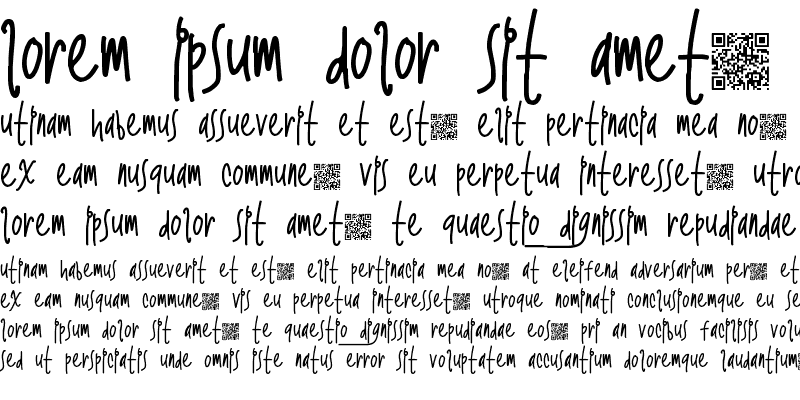 lorem ipsum dolor sit amet
utinam habemus assueverit et est elit pertinacia mea no
ex eam nusquam commune vis eu perpetua interesset utro
lorem ipsum dolor sit amet te quaestio dignissim repudiandae
utinam habemus assueverit et est elit pertinacia mea no at eleifend adversarium per et
ex eam nusquam commune vis eu perpetua interesset utroque nominati conclusionemque eu se
lorem ipsum dolor sit amet te quaestio dignissim repudiandae eos pri an vocibus facilisis volu
sed ut perspiciatis unde omnis iste natus error sit voluptatem accusantium doloremque laudantium